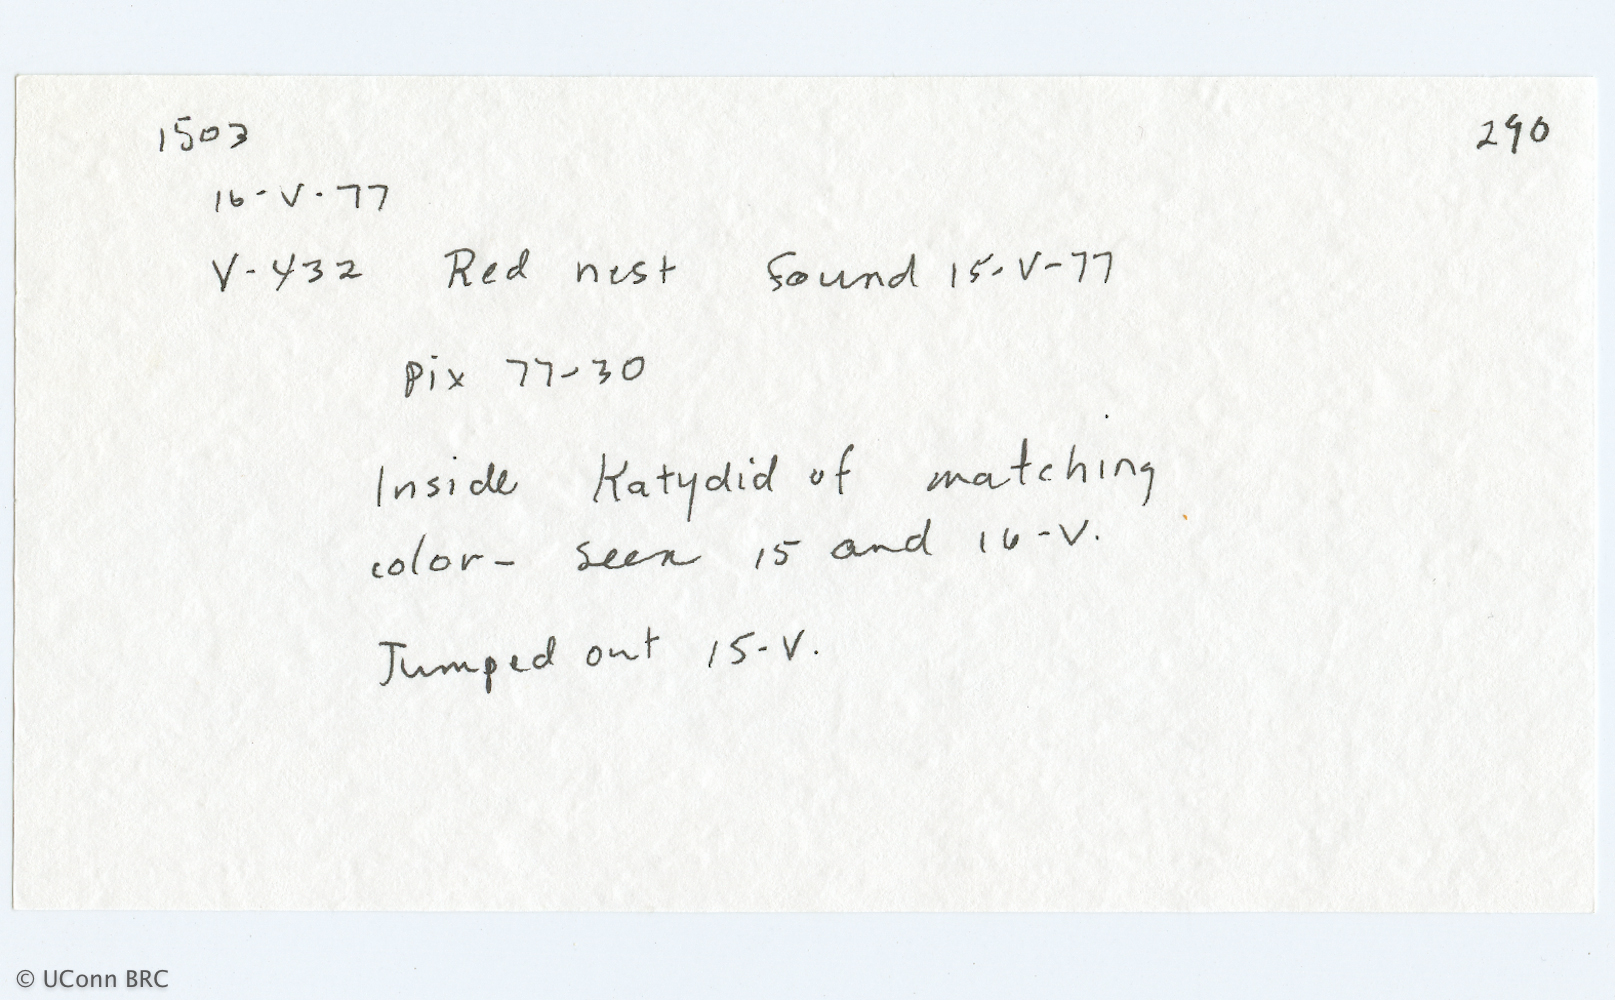 1503 290
16-V-77
V-432 Red nest found 15-V-77
Pix 77-30
Inside Katydid of matching
color- seen 15 and 16-V.
Jumped out 15-V.
© UConn BRC